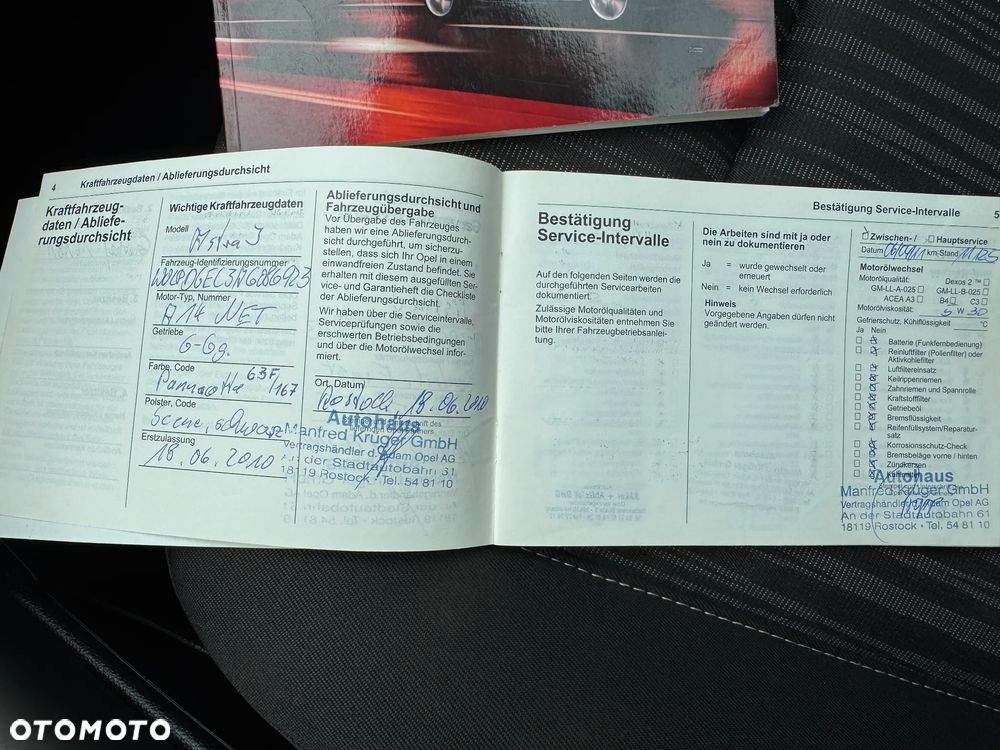 4 Kraftfahrzeugdaten / Ablieferungsdurchsicht
Kraftfahrzeug-
daten / Abliefe-
rungsdurchsicht
Wichtige Kraftfahrzeugdaten
Modell
Astra J
Fahrzeug-Identifizierungsnummer
Motor-Typ, Nummer
A14 NET
Getriebe
6-Gg.
Farbe, Code
Pannacotta 63F/167
Polster, Code
schwarz
Erstzulassung
18.06.2010
Ablieferungsdurchsicht und
Fahrzeugübergabe
Vor Übergabe des Fahrzeuges
haben wir eine Ablieferungsdurch-
sicht durchgeführt, um sicherzu-
stellen, dass sich Ihr Opel in einem
einwandfreien Zustand befindet. Sie
erhalten mit diesem ausgefüllten Ser-
vice- und Garantieheft die Checkliste
der Ablieferungsdurchsicht.
Wir haben über die Serviceintervalle,
Serviceprüfungen sowie die
erschwerten Betriebsbedingungen
und über die Motorölwechsel infor-
miert.
Ort, Datum
Rostock, 18.06.2010
Autohaus
Manfred Krüger GmbH
Vertragshändler d. Adam Opel AG
An der Stadtautobahn 61
18119 Rostock · Tel. 54 81 10
Bestätigung Service-Intervalle 5
Bestätigung
Service-Intervalle
Auf den folgenden Seiten werden die
durchgeführten Servicearbeiten
dokumentiert.
Zulässige Motorölqualitäten und
Motorölviskositäten entnehmen Sie
bitte Ihrer Fahrzeugbetriebsanlei-
tung.
Die Arbeiten sind mit ja oder
nein zu dokumentieren
Ja = wurde gewechselt oder
erneuert
Nein = kein Wechsel erforderlich
Hinweis
Vorgegebene Angaben dürfen nicht
geändert werden.
Zwischen- / Hauptservice
Datum km-Stand
Motorölwechsel
Motorölqualität: Dexos 2 ™
GM-LL-A-025 GM-LL-B-025
ACEA A3 B4 C3
Motorölviskosität: 5 W 30
Gefrierschutz, Kühlflüssigkeit °C
Ja Nein
Batterie (Funkfernbedienung)
Reinluftfilter (Pollenfilter) oder
Aktivkohlefilter
Luftfiltereinsatz
Keilrippenriemen
Zahnriemen und Spannrolle
Kraftstofffilter
Getriebeöl
Bremsflüssigkeit
Reifenfüllsystem/Reparatur-
satz
Korrosionsschutz-Check
Bremsbeläge vorne / hinten
Zündkerzen
Autohaus
Manfred Krüger GmbH
Vertragshändler d. Adam Opel AG
An der Stadtautobahn 61
18119 Rostock · Tel. 54 81 10
OTOMOTO